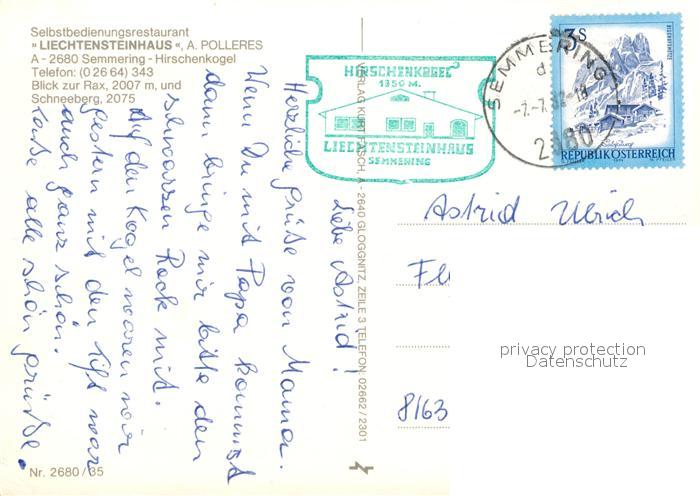 Selbstbedienungsrestaurant
»LIECHTENSTEINHAUS«, A. POLLERES
A - 2680 Semmering - Hirschenkogel
Telefon: (0 26 64) 343
Blick zur Rax, 2007 m, und
Schneeberg, 2075
HIRSCHENKOGEL
1350 M.
LIECHTENSTEINHAUS
SEMMERING
SEMMERING
2680
3S
REPUBLIK ÖSTERREICH
Liebe Astrid!
Herzliche Grüße von Mama.
Wenn Du mit Papa kommst
dann bringe mir bitte den
schwarzen Rock mit.
Auf den Kogel waren wir
gestern mit den Lift war
auch ganz schön.
Lasse alle schön grüße
Astrid Ulrich
8163
privacy protection
Datenschutz
VERLAG KURT A - 2640 GLOGGNITZ, ZEILE 3 TELEFON: 02662 / 2301
Nr. 2680/35